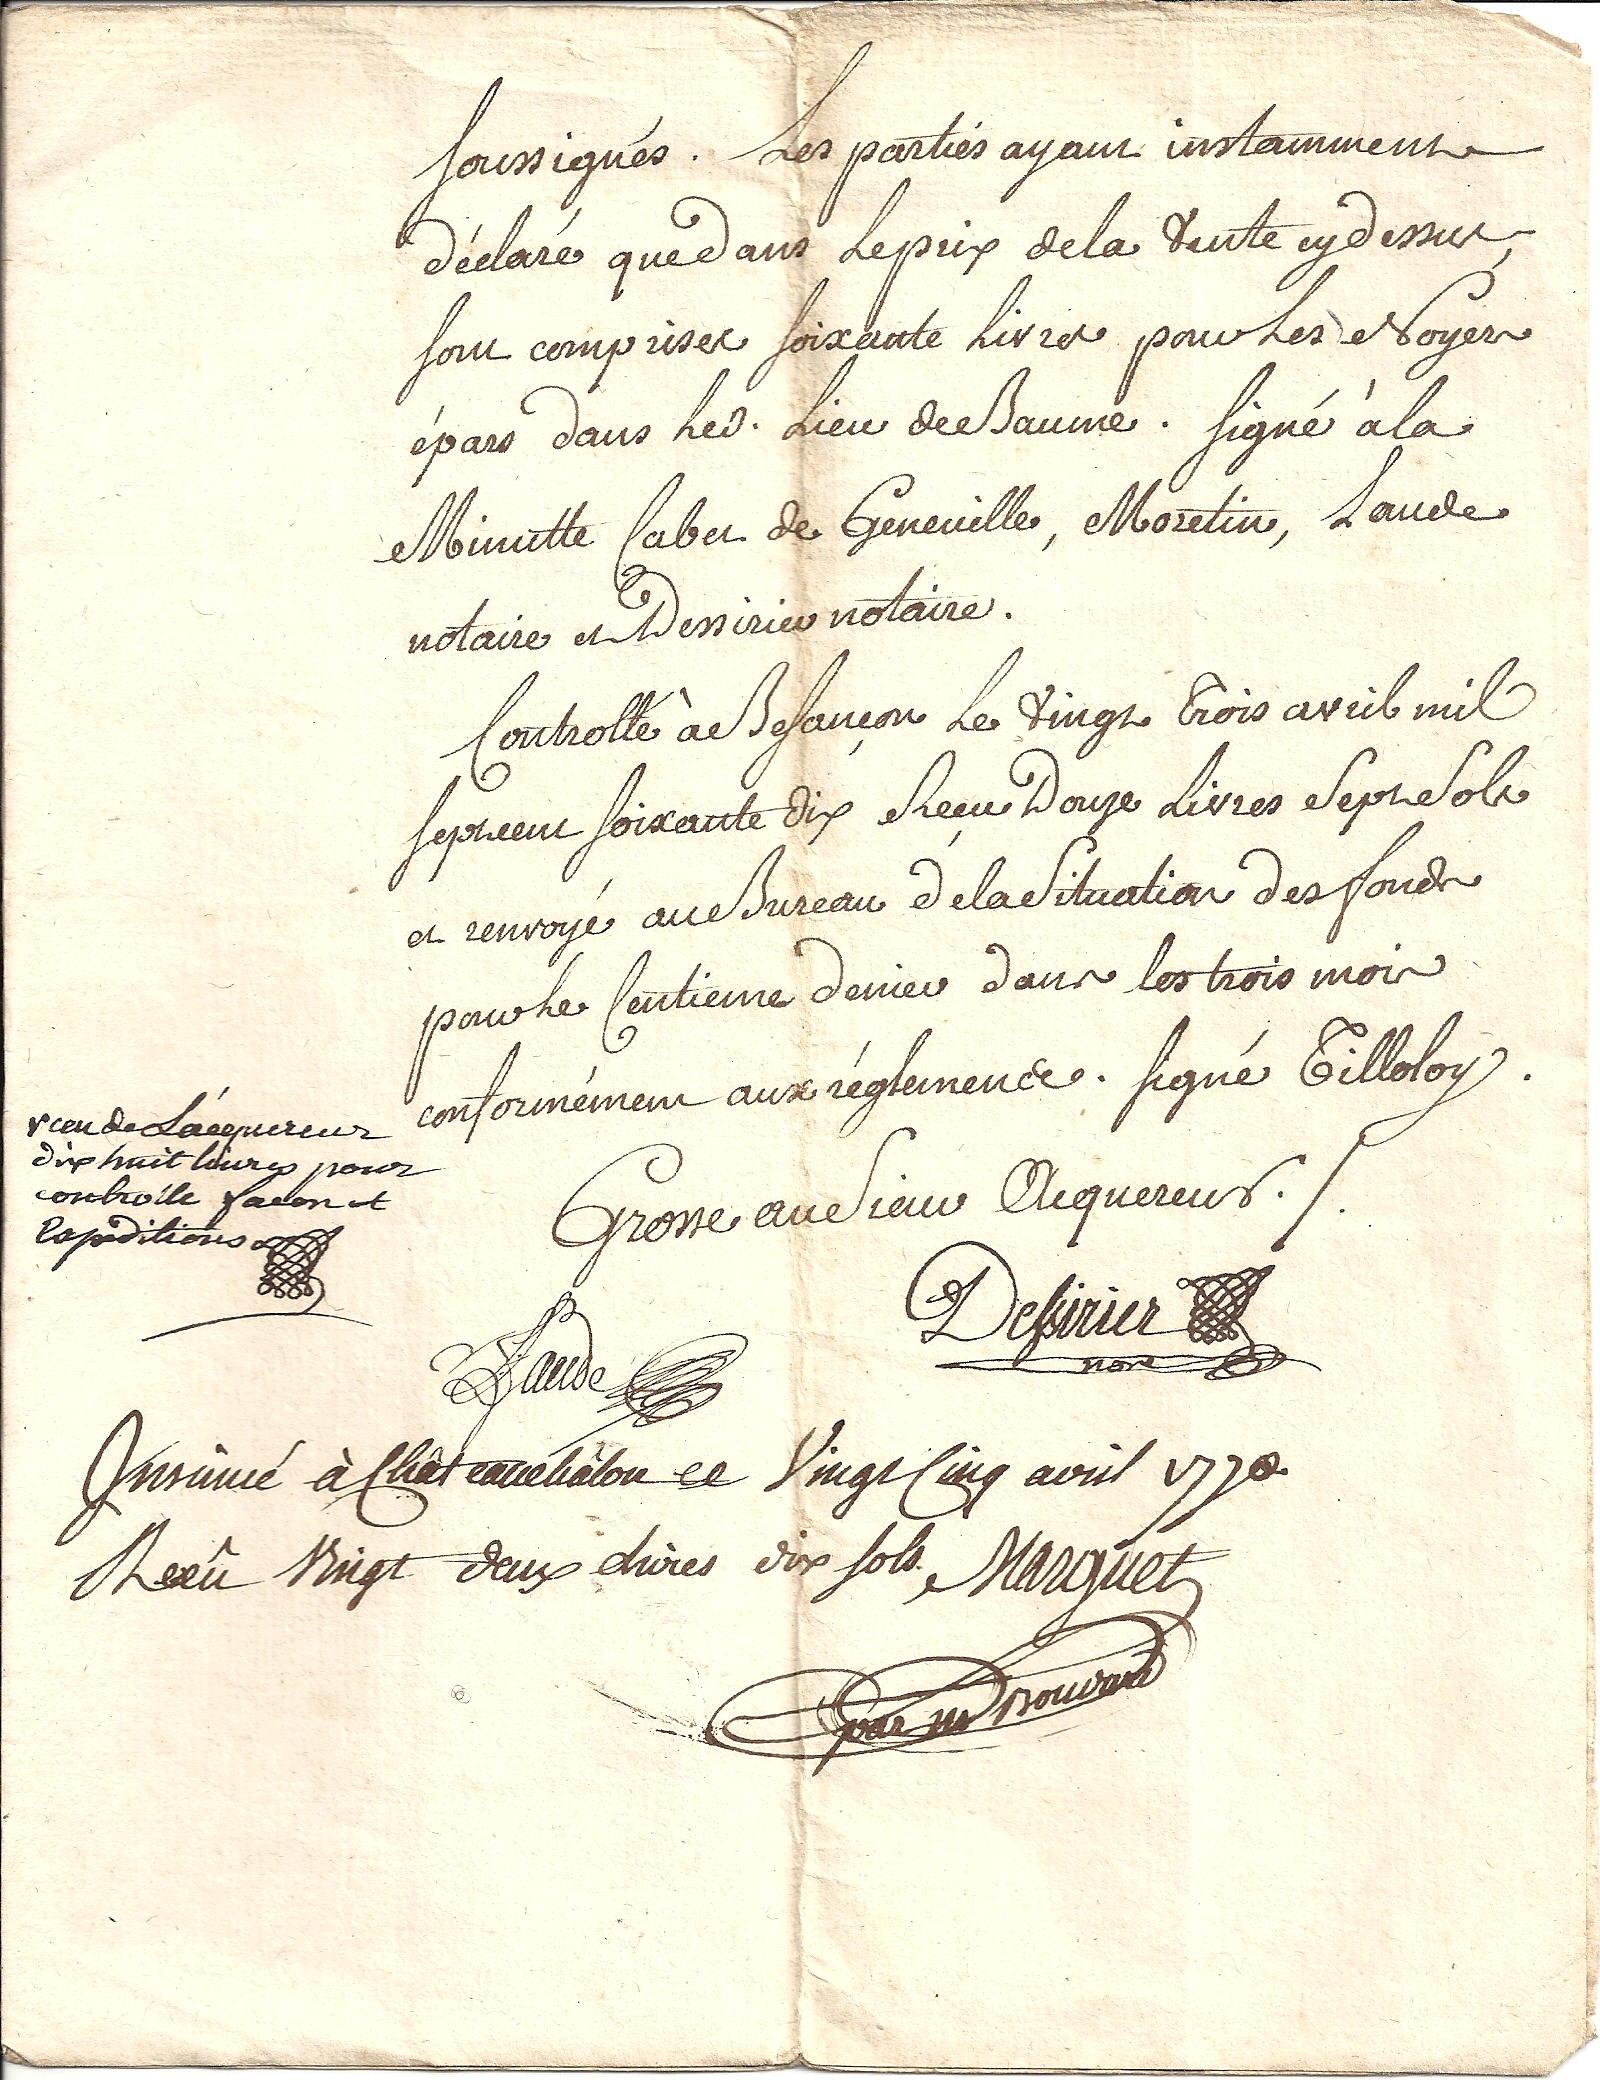 soussignés. Les partiés ayant instamment
déclaré que dans le prix de la vente cy dessus,
sont comprises soixante livres pour les Noyers
épars dans led. lieu de Baume. signé à la
Minutte Cabet de Geneuille, Moretin, Laude
notaire et Dessirier notaire.
Controllé à Besançon le vingt trois avril mil
sept cent soixante dix Reçu Douze Livres Sept Sols
et renvoyé au Bureau de la Situation des fonds
pour le Centieme denier dans les trois mois
conformément aux réglements. signé Tilloloy.
Grosse au Sieur Acquereur./.
rceu de Lácquereur
dix huit livres pour
controlle facon et
Expéditions
Dessirier
nore
Laude
Insinué à Châteauchâlon ce Vingt Cinq avril 1770
Receû Vingt deux livres dix sols. Marguet
par Mr Bouvard